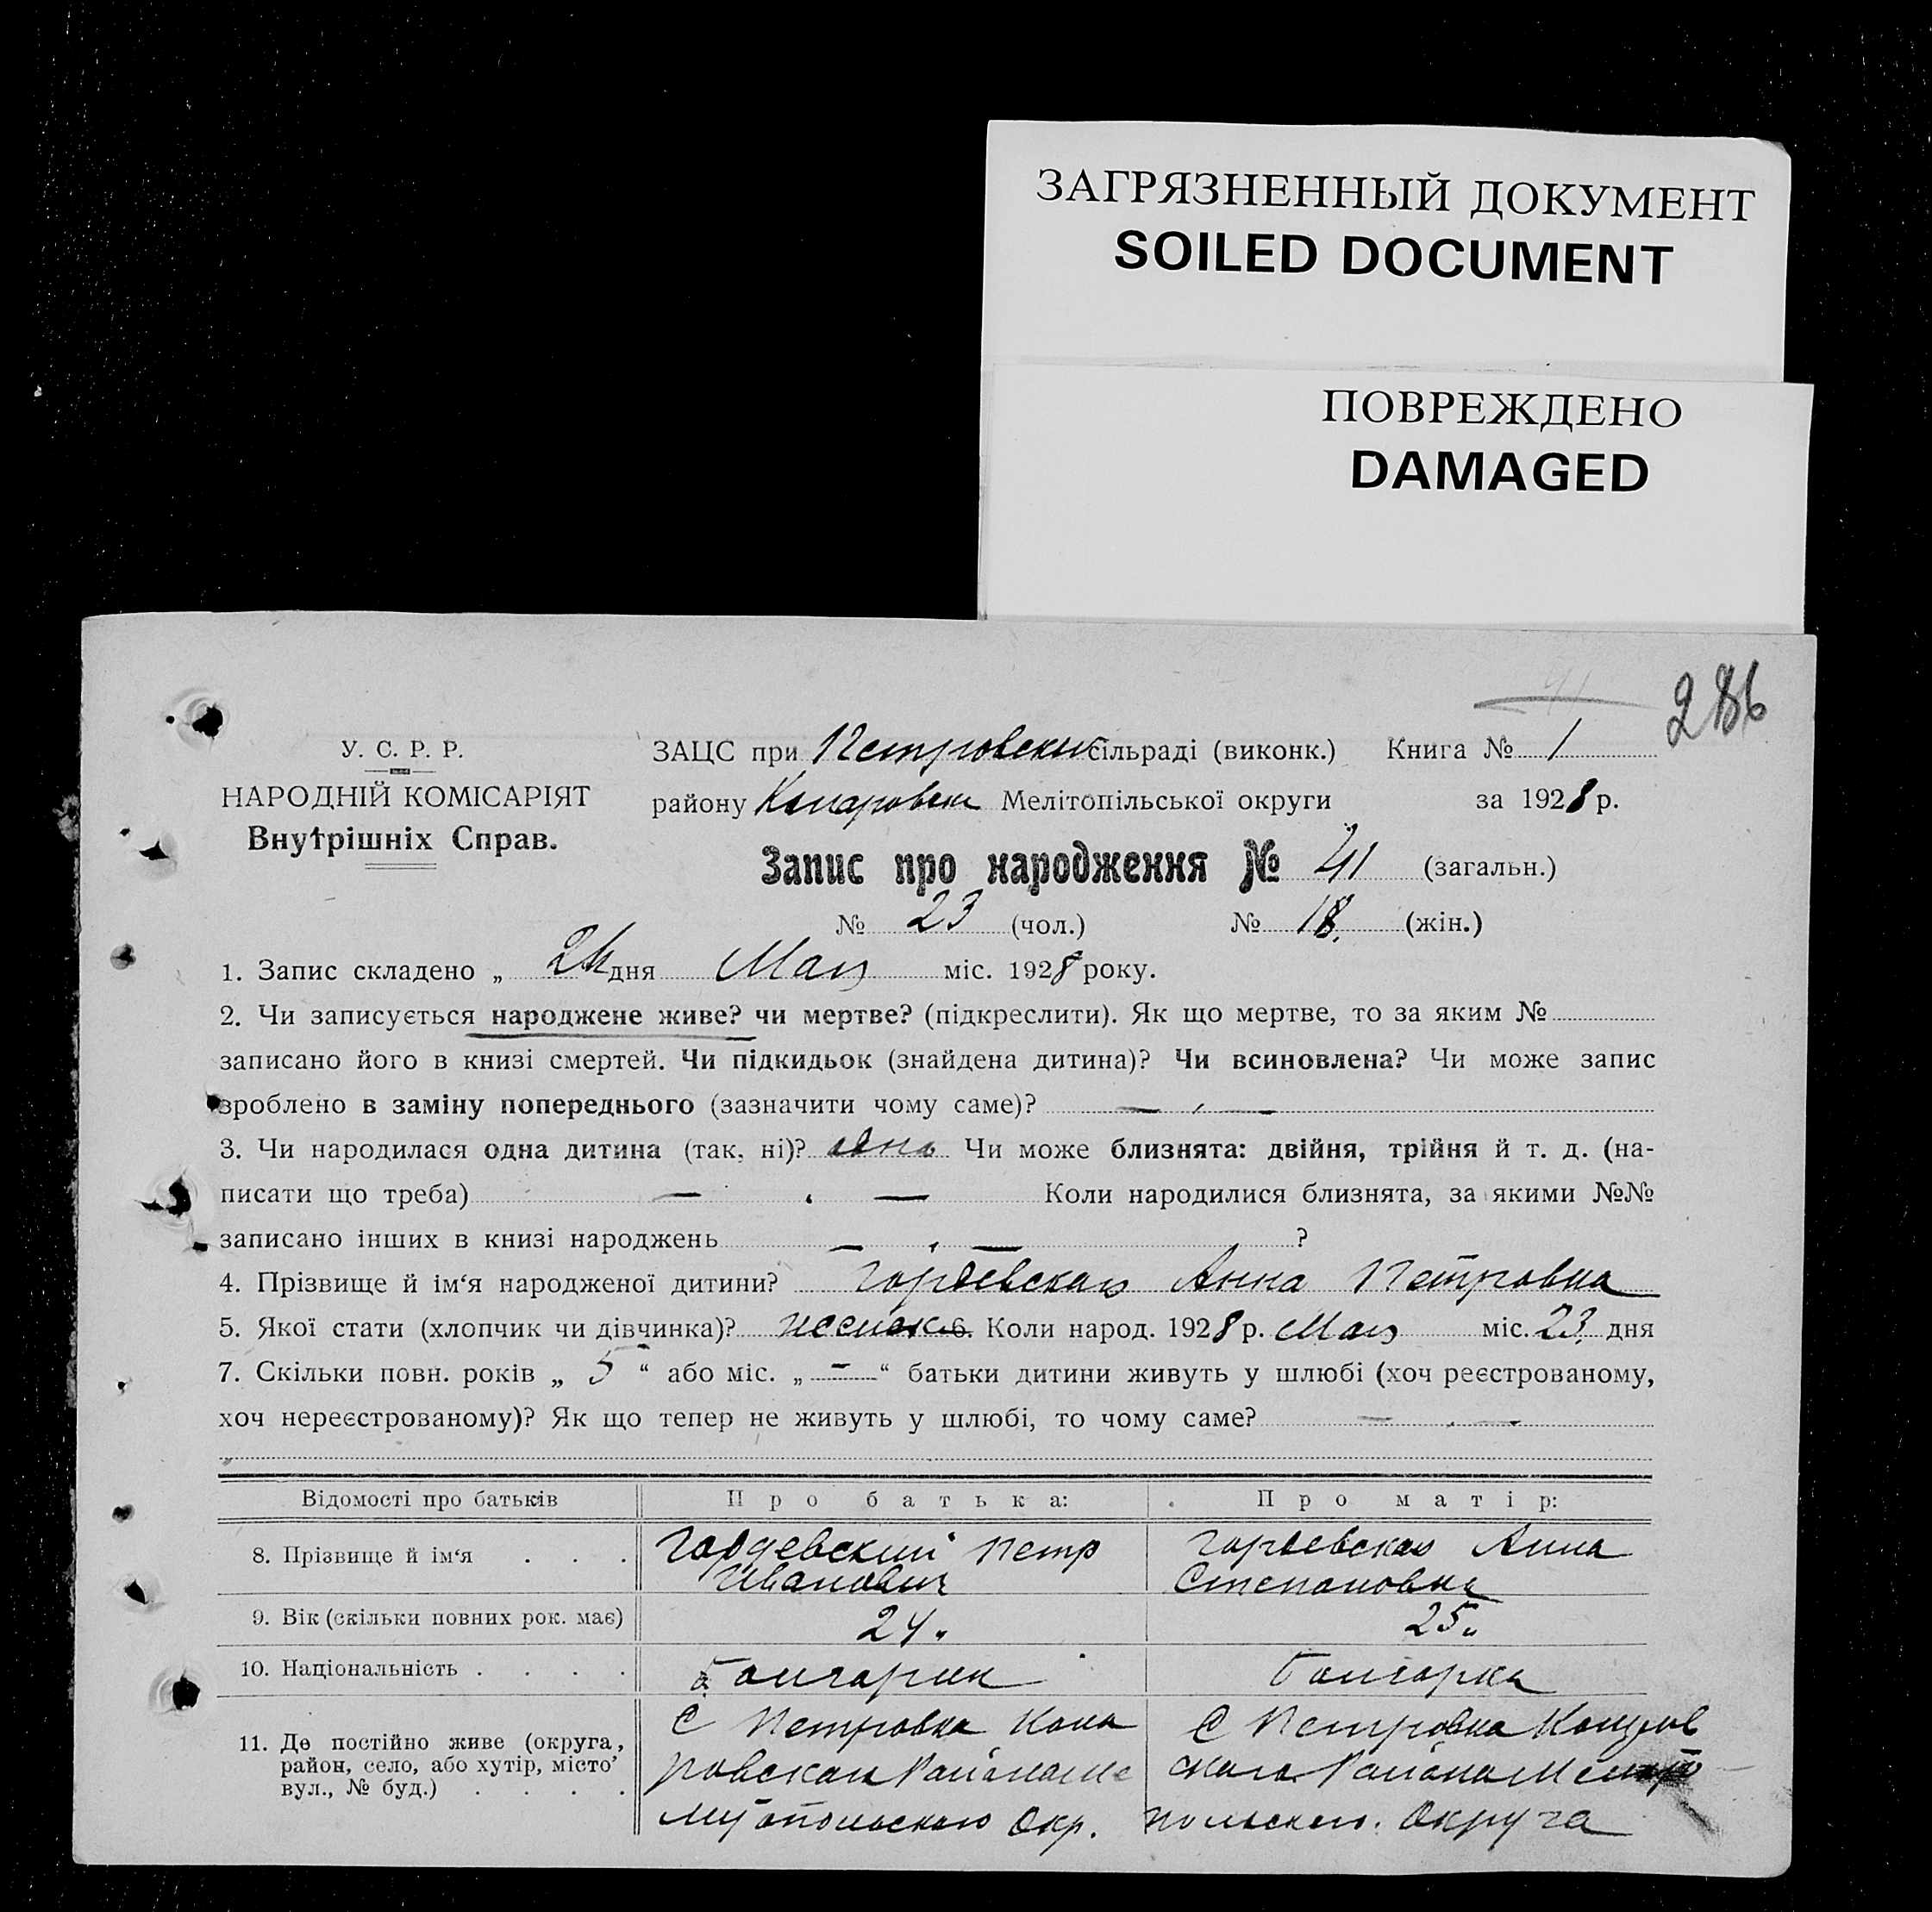 ЗАГРЯЗНЕННЫЙ ДОКУМЕНТ
SOILED DOCUMENT
ПОВРЕЖДЕНО
DAMAGED
286
У. С. Р. Р.
НАРОДНІЙ КОМІСАРІЯТ
Внутрішніх Справ.
ЗАЦС при Петровском сільраді (виконк.) Книга № 1
району Мелітопільської округи за 1928 р.
Запис про народження № 41 (загальн.)
№ 23 (чол.) № 18. (жін.)
1. Запис складено „ дня Мая міс. 1928 року.
2. Чи записується народжене живе? чи мертве? (підкреслити). Як що мертве, то за яким №
записано його в книзі смертей. Чи підкидьок (знайдена дитина)? Чи всиновлена? Чи може запис
зроблено в заміну попереднього (зазначити чому саме)? —
3. Чи народилася одна дитина (так, ні)? одна Чи може близнята: двійня, трійня й т. д. (на-
писати що треба) — Коли народилися близнята, за якими №№
записано інших в книзі народжень — ?
4. Прізвище й ім‘я народженої дитини? Гордевская Анна Петровна
5. Якої стати (хлопчик чи дівчинка)? женск 6. Коли народ. 1928 р. Мая міс. 23 дня
7. Скільки повн. років „ 5 “ або міс. „ — “ батьки дитини живуть у шлюбі (хоч реєстрованому,
хоч нереєстрованому)? Як що тепер не живуть у шлюбі, то чому саме? —
Відомості про батьків Про батька: Про матір:
8. Прізвище й ім‘я . . . Гордевский Петр Гордевская Анна
Иванович Степановна
9. Вік (скільки повних рок. має) 24 25
10. Національність . . . . Болгарин Болгарка
11. Де постійно живе (округа, С Петровка С Петровка
район, село, або хутір, місто
вул., № буд.) . . . . Окр. польского Округа